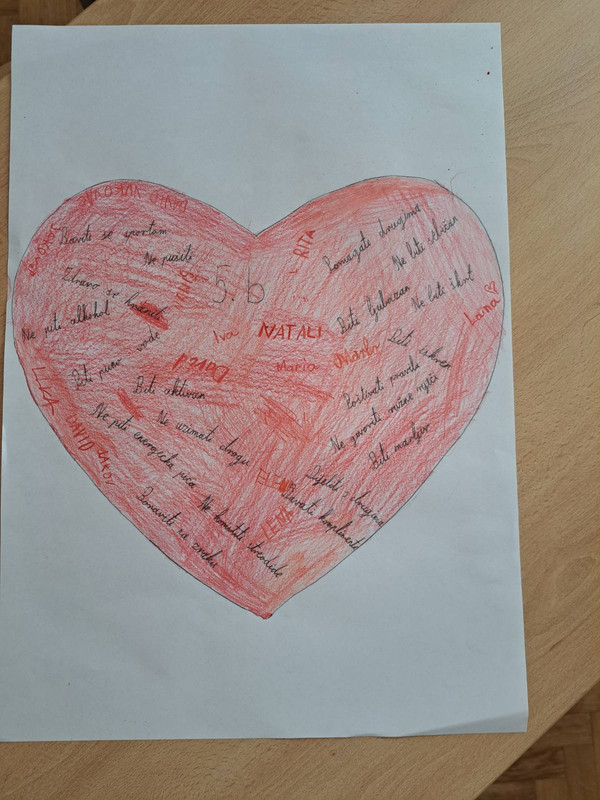 Baviti se sportom
Ne pušiti
Zdravo se hraniti
Ne piti alkohol
Piti puno vode
Biti aktivan
Ne uzimati drogu
Ne piti energetska pića
Ne koristiti steroide
Boraviti na zraku
5. b
RITA
Iva
NATALI
David
Maria
Marko
LENA
Lana
Pomagati drugima
Ne biti sebičan
Biti ljubazan
Ne biti škrt
Biti iskren
Poštivati pravila
Ne govoriti ružne riječi
Biti marljiv
Dijeliti s drugima
Davati komplimente